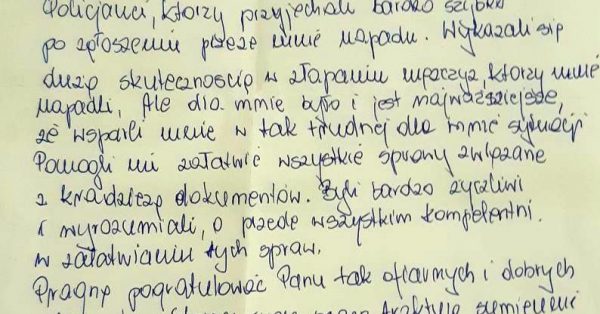 Policjanci, którzy przyjechali bardzo szybko
po zgłoszeniu przeze mnie napadu. Wykazali się
dużą skutecznością w złapaniu mężczyz, którzy mnie
napadli, Ale dla mnie było i jest najważniejsze,
że wsparli mnie w tak trudnej dla mnie sytuacji
Pomogli mi załatwić wszystkie sprawy związane
z kradzieżą dokumentów. Byli bardzo życzliwi
i wyrozumiali, a przede wszystkim kompetentni.
w załatwianiu tych spraw.
Pragnę pogratulować Panu tak ofiarnych i dobrych
traktują